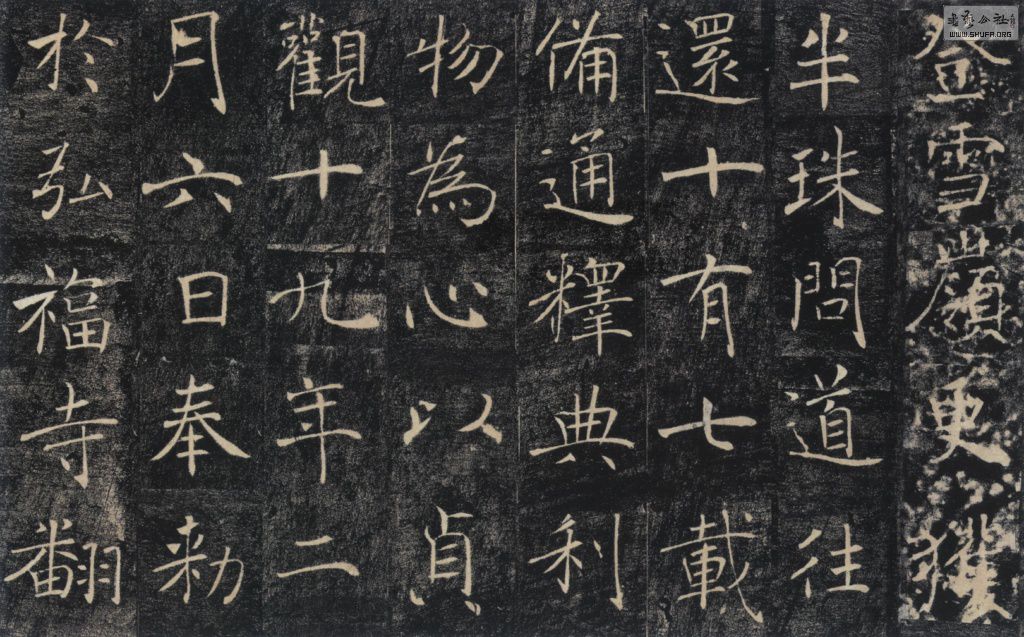 登雪嶺更獲
半珠問道往
還十有七載
備通釋典利
物為心以貞
觀十九年二
月六日奉勑
於弘福寺翻
書法公社
WWW.SHUFA.ORG